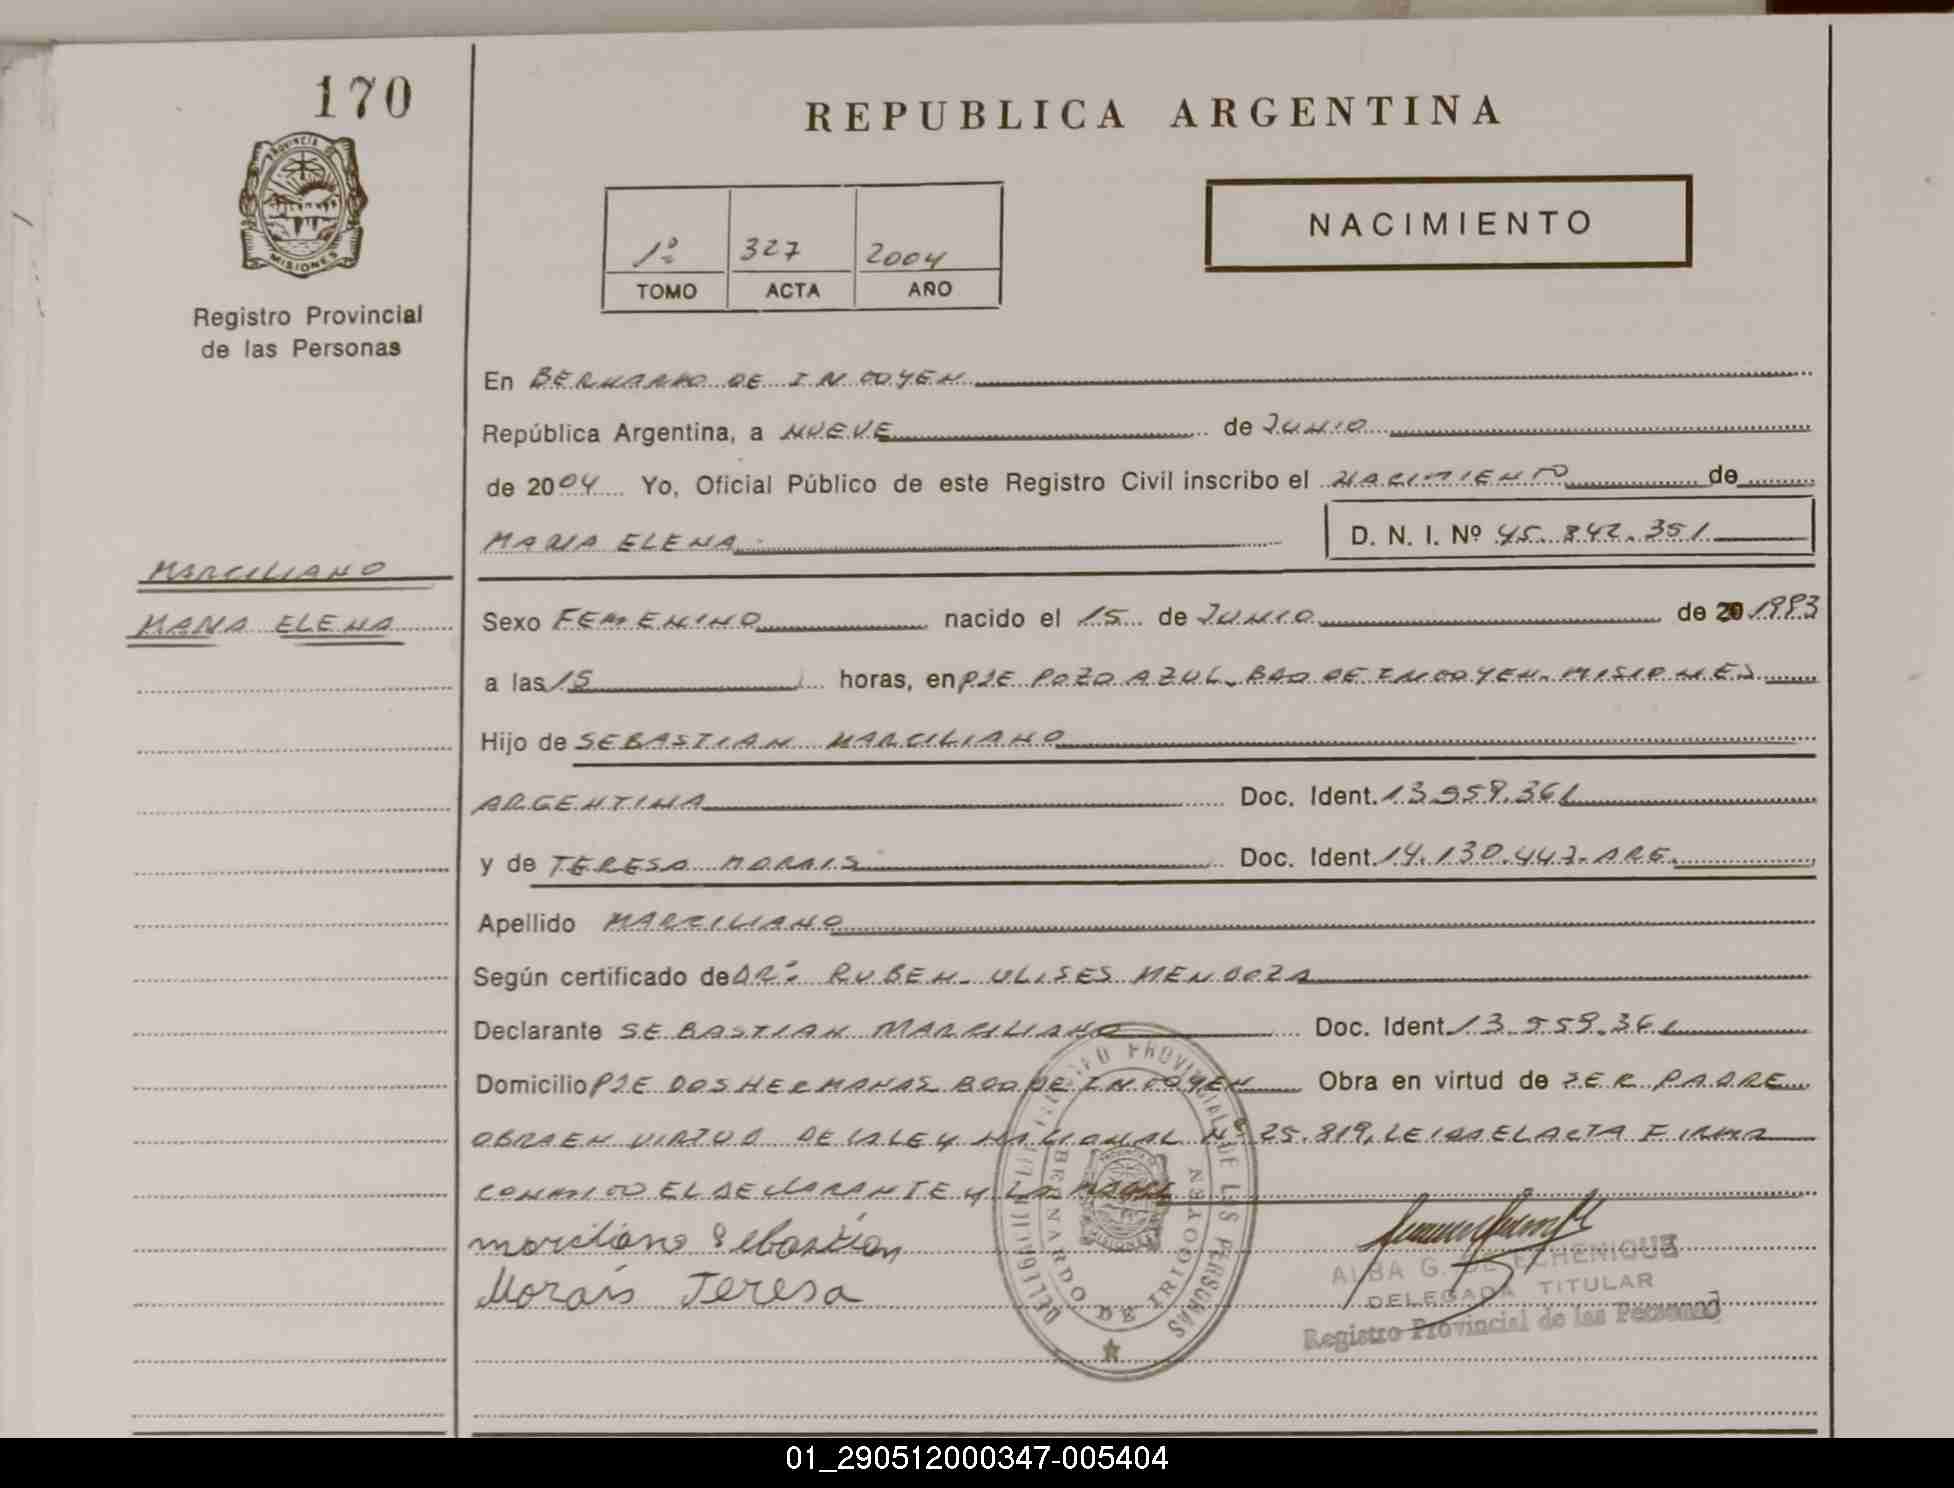 170
PROVINCIA DE
MISIONES
Registro Provincial
de las Personas
MARCILIANO
MARIA ELENA
REPUBLICA ARGENTINA
1º 327 2004
TOMO ACTA AÑO
NACIMIENTO
En BERNARDO DE IRIGOYEN
República Argentina, a NUEVE de JUNIO
de 2004 Yo, Oficial Público de este Registro Civil inscribo el NACIMIENTO de
MARIA ELENA D. N. I. Nº 45.842.351
Sexo FEMENINO nacido el 15 de JUNIO de 20 1993
a las 15 horas, en PJE POZO AZUL. BDO DE IRIGOYEN. MISIONES
Hijo de SEBASTIAN MARCILIANO
ARGENTINA Doc. Ident. 13.559.361
y de TERESA MORAIS Doc. Ident. 14.130.447. ARG.
Apellido MARCILIANO
Según certificado de DR: RUBEN ULISES MENDOZA
Declarante SEBASTIAN MARCILIANO Doc. Ident. 13.559.361
Domicilio PJE DOS HERMANAS BDO DE IRIGOYEN Obra en virtud de SER PADRE
OBRA EN VIRTUD DE LA LEY NACIONAL Nº 25.819, LEIDA EL ACTA FIRMA
CONMIGO EL DECLARANTE Y LA MADRE
marciliano Sebastian
Morais Teresa
DELEGACION REGISTRO PROVINCIAL DE LAS PERSONAS
BERNARDO DE IRIGOYEN
ALBA G. DE ECHENIQUE
DELEGADA TITULAR
Registro Provincial de las Personas
01_290512000347-005404